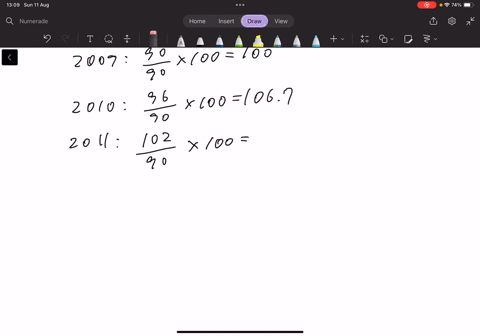 13:09 Sun 11 Aug
74%
Numerade
Home Insert Draw View
2009: 90/90 × 100 = 100
2010: 96/90 × 100 = 106.7
2011: 102/90 × 100 =